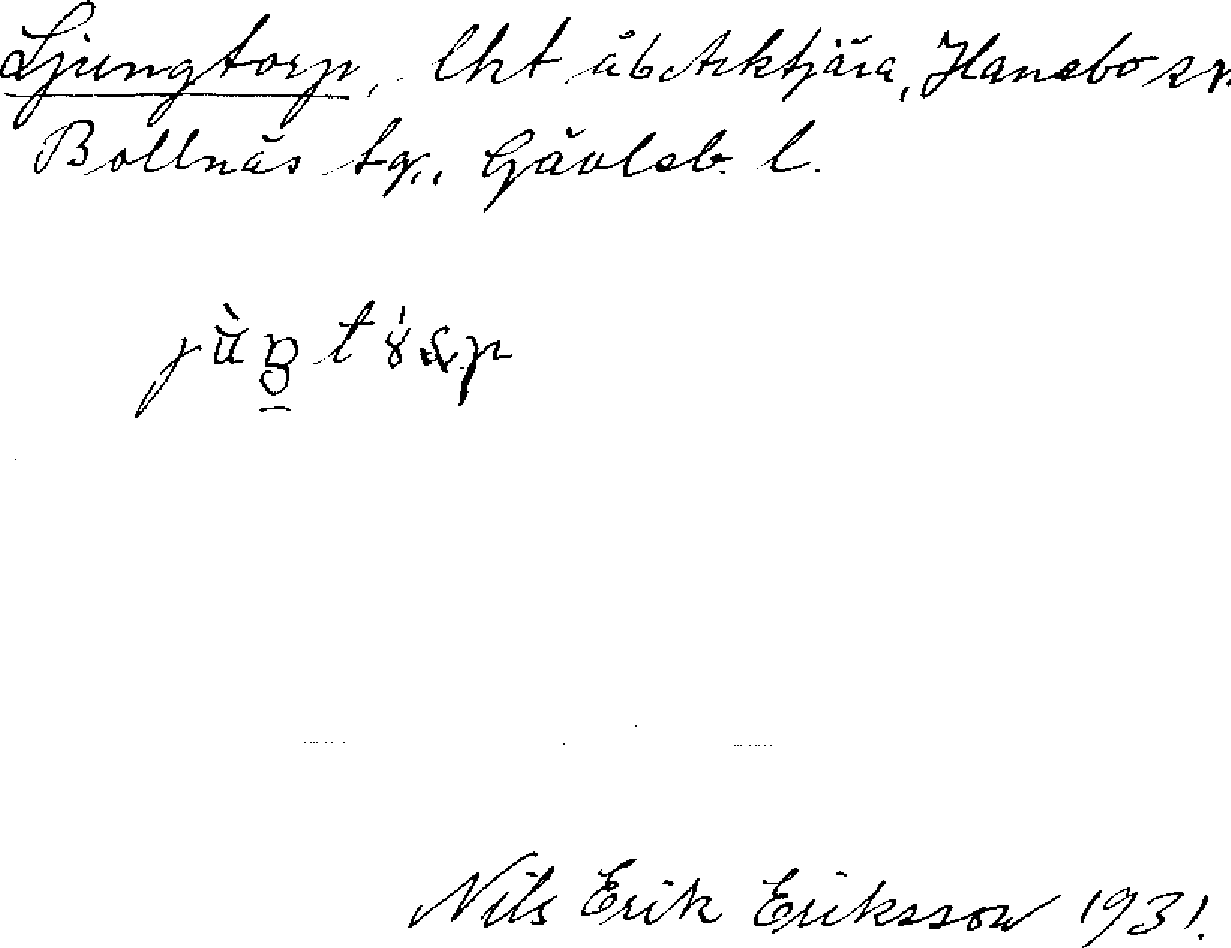 Ljungtorp, lht åb Arktjära, Hanebo sn.
Bollnäs tg., Gävleb. l.
Nils Erik Eriksson 1931.